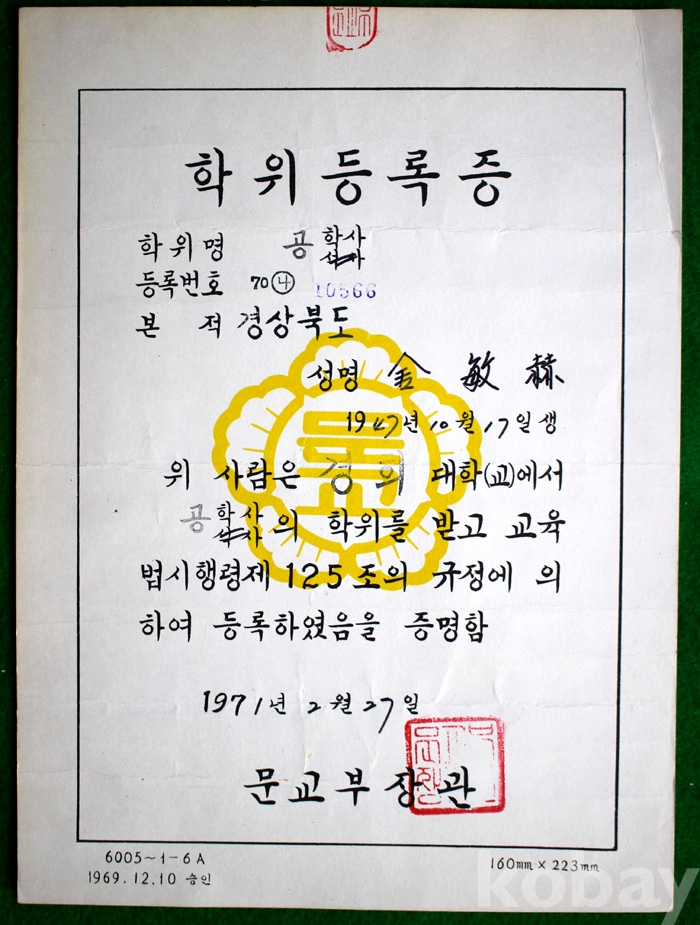 학위등록증
학위명 공 학사
석사
등록번호 70㉯ 10566
본 적 경상북도
성명 金 敏 赫
1947년 10월 17일생
위 사람은 경희 대학(교)에서
공 학사
석사 의 학위를 받고 교육
법시행령제 125조의 규정에 의
하여 등록하였음을 증명함
1971년 2월 27일
문교부장관
6005~1-6A
1969.12.10 승인
160mm × 223mm
kobay